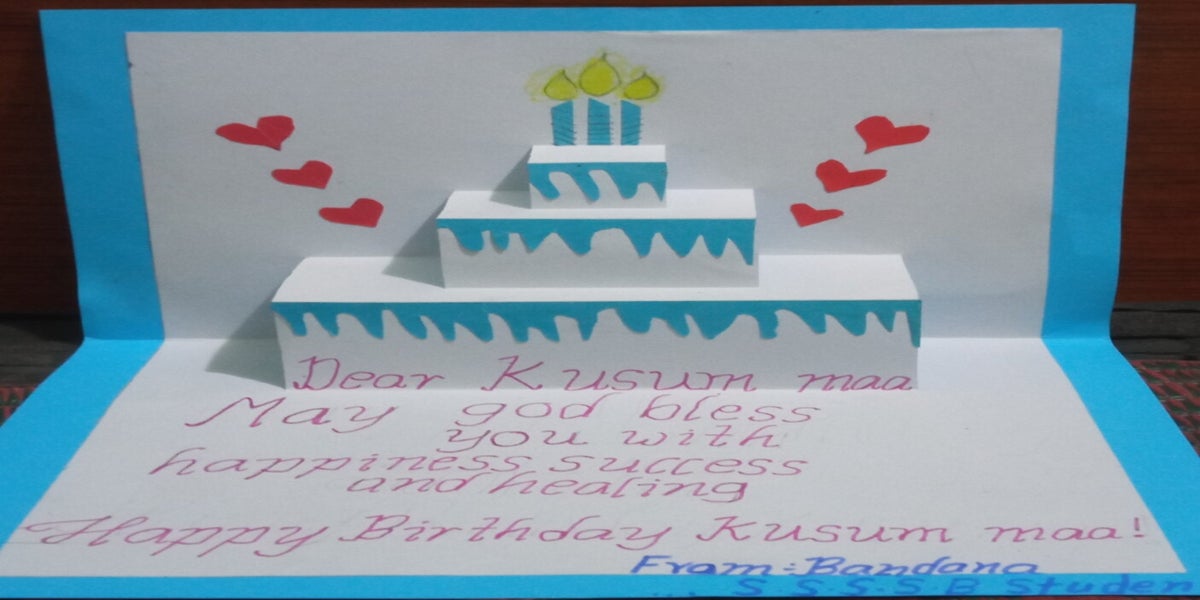 Dear Kusum maa
May god bless
you with
happiness success
and healing
Happy Birthday Kusum maa!
From:- Bandana
... S.S.S.S.B Studen